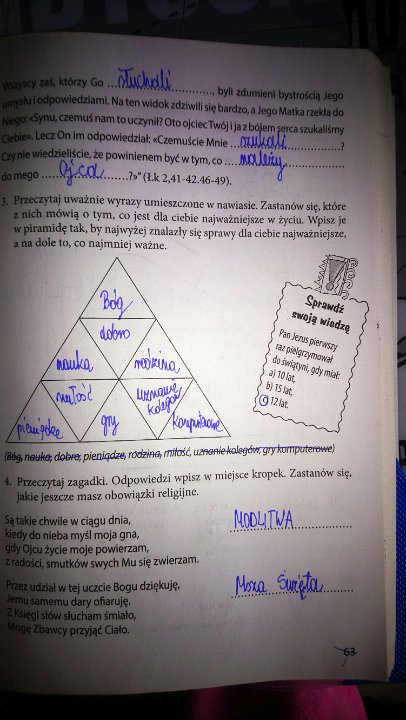 Wszyscy zaś, którzy Go ...słuchali..., byli zdumieni bystrością Jego
umysłu i odpowiedziami. Na ten widok zdziwili się bardzo, a Jego Matka rzekła do
Niego: «Synu, czemuś nam to uczynił? Oto ojciec Twój i ja z bólem serca szukaliśmy
Ciebie». Lecz On im odpowiedział: «Czemuście Mnie ...szukali...?
Czy nie wiedzieliście, że powinienem być w tym, co ...należy...
do mego ...Ojca...?»" (Łk 2,41-42.46-49).
3. Przeczytaj uważnie wyrazy umieszczone w nawiasie. Zastanów się, które
z nich mówią o tym, co jest dla ciebie najważniejsze w życiu. Wpisz je
w piramidę tak, by najwyżej znalazły się sprawy dla ciebie najważniejsze,
a na dole to, co najmniej ważne.
Bóg
dobro
nauka
rodzina
miłość
uznanie
kolegów
pieniądze
gry
komputerowe
Sprawdź
swoją wiedzę
Pan Jezus pierwszy
raz pielgrzymował
do świątyni, gdy miał:
a) 10 lat,
b) 15 lat,
c) 12 lat.
(Bóg, nauka, dobro, pieniądze, rodzina, miłość, uznanie kolegów, gry komputerowe)
4. Przeczytaj zagadki. Odpowiedzi wpisz w miejsce kropek. Zastanów się,
jakie jeszcze masz obowiązki religijne.
Są takie chwile w ciągu dnia,
kiedy do nieba myśl moja gna,
gdy Ojcu życie moje powierzam,
z radości, smutków swych Mu się zwierzam.
MODLITWA
Przez udział w tej uczcie Bogu dziękuję,
Jemu samemu dary ofiaruję.
Z Księgi słów słucham śmiało,
Mogę Zbawcy przyjąć Ciało.
Msza Święta
63